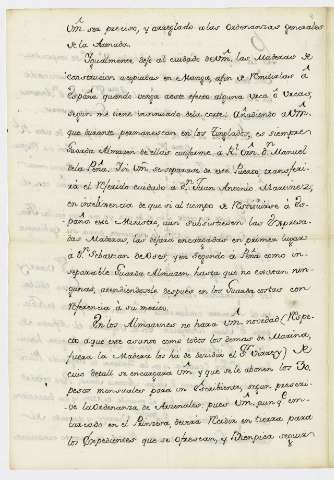 Vm. sea preciso, y arreglado a las Ordenanzas generales
de la Armada.
Igualmente dejo al cuidado de Vm. las Maderas de
Construccion acopiadas en Manga, afin de Remitirlas á
España quando venga a este efecto alguna Urca ó Urcas,
segun me tiene insinuado la corte: Añadiendo a Vm.
que durante permanescan en los Tinglados, es siempre
Guarda Almazen de ellas conforme á Rl. orn. Dn. Manuel
de la Peña. Si Vm. se separase de este Puerto, transferi-
rá el referido cuidado á Dn. Juan Antonio Martinez,
en inteligencia de que si al tiempo de Restituirse á Es-
paña este Ministro, aun subsistiesen las Expresa-
das Maderas, las dejará encargadas en primer lugar
á Dn. Sebastian de Osés, y en segundo a Peña como in-
separable Guarda Almazen, hasta que no existan nin-
gunas, atendiendosele despues en los Guarda costas con
referencia á su merito.
En los Almacenes no hara Vm. novedad (Respe-
cto a que este asunto como todos los demas de Marina,
fuera la Madera los ha de decidir el Exmo. Virrey) de
cuio detall se encargará Vm. y que se le abonen los 30
pesos mensuales para un Escribiente, segun prescri-
be la Ordenanza de Arsenales, pues Vm. aunqe. em-
barcado en el Primera deverá Residir en tierra para
los Expedientes que se ofrescan, y siempre seguir